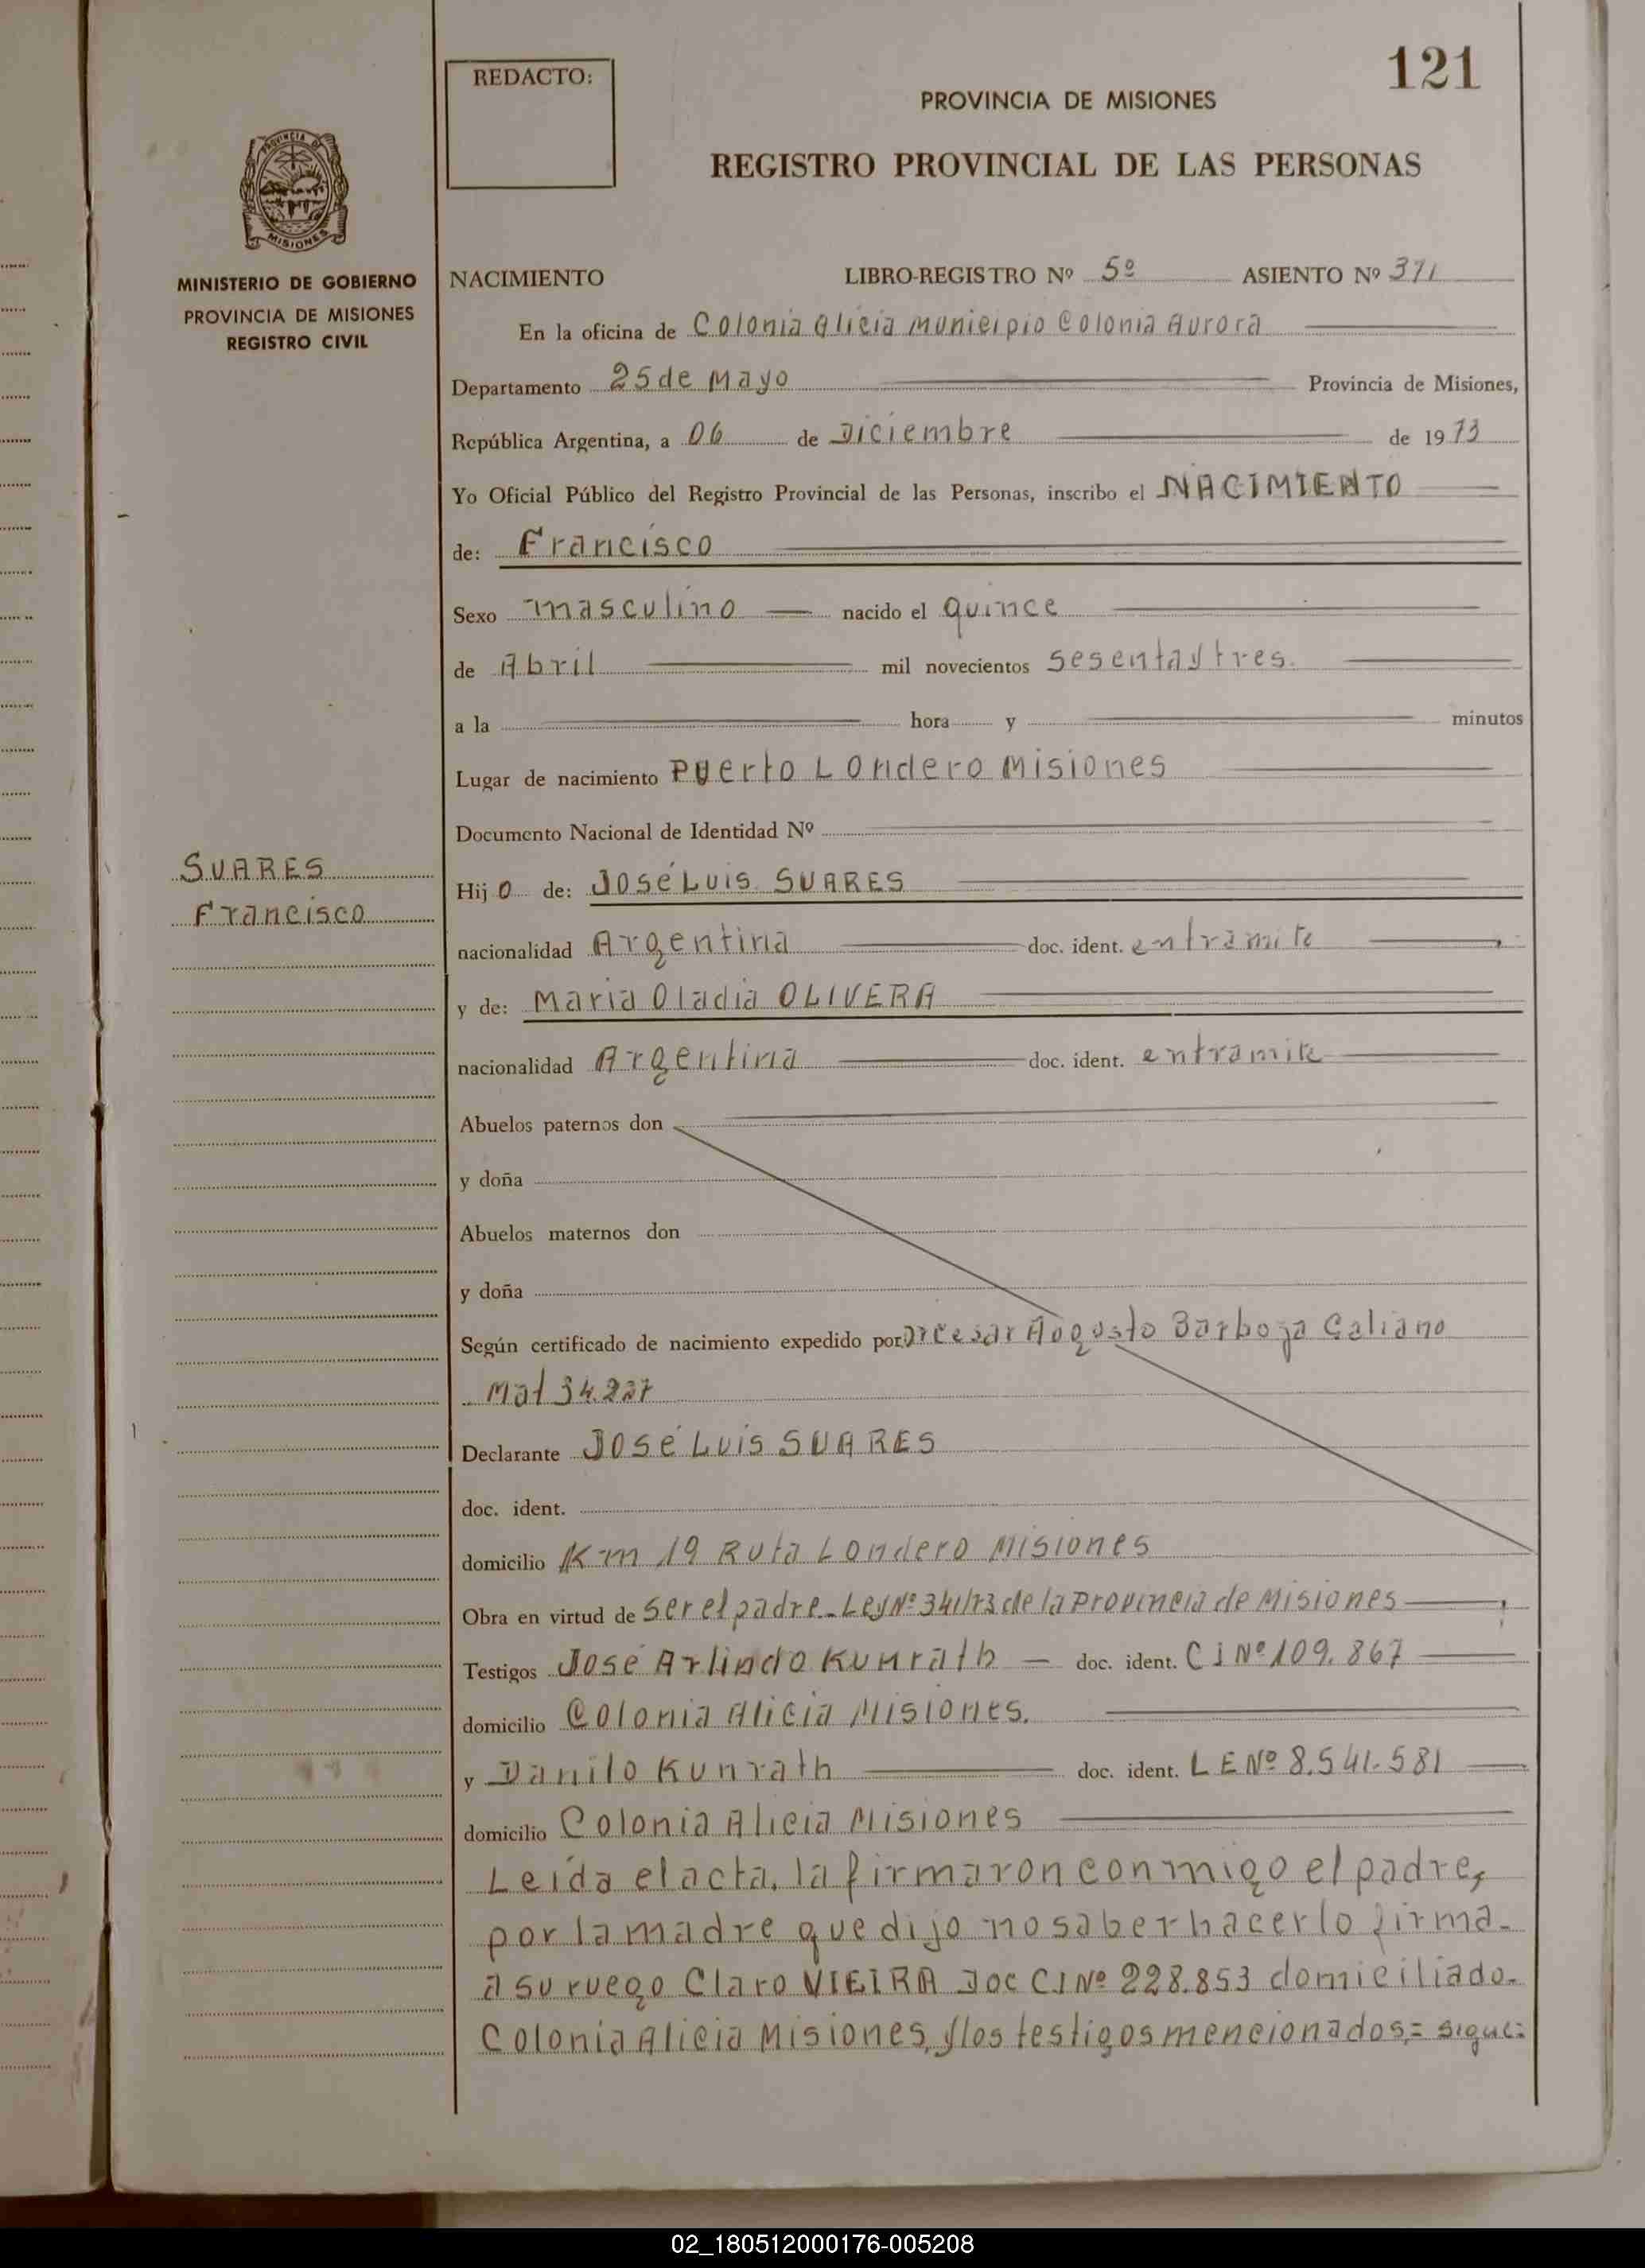 121
REDACTO:
PROVINCIA DE MISIONES
REGISTRO PROVINCIAL DE LAS PERSONAS
PROVINCIA DE
MISIONES
MINISTERIO DE GOBIERNO
PROVINCIA DE MISIONES
REGISTRO CIVIL
NACIMIENTO LIBRO-REGISTRO Nº 5º ASIENTO Nº 371
En la oficina de Colonia Alicia Municipio Colonia Aurora
Departamento 25 de Mayo Provincia de Misiones,
República Argentina, a 06 de Diciembre de 1973
Yo Oficial Público del Registro Provincial de las Personas, inscribo el NACIMIENTO
de: Francisco
Sexo masculino nacido el quince
de Abril mil novecientos sesentaytres.
a la hora y minutos
Lugar de nacimiento Puerto Londero Misiones
Documento Nacional de Identidad Nº
SUARES
Francisco
Hijo de: José Luis SUARES
nacionalidad Argentina doc. ident. entramite
y de: Maria Oladia OLIVERA
nacionalidad Argentina doc. ident. entramite
Abuelos paternos don
y doña
Abuelos maternos don
y doña
Según certificado de nacimiento expedido por Dr Cesar Augusto Barboza Galiano
Mat 34.227
Declarante José Luis SUARES
doc. ident.
domicilio Km 19 Ruta Londero Misiones
Obra en virtud de ser el padre - Ley Nº 341/73 de la Provincia de Misiones
Testigos José Arlindo Kunrath — doc. ident. CI Nº 109.867
domicilio Colonia Alicia Misiones.
y Danilo Kunrath doc. ident. LE Nº 8.541.581
domicilio Colonia Alicia Misiones
Leída el acta, la firmaron conmigo el padre,
por la madre que dijo no saber hacerlo firma-
a su ruego Claro VIEIRA Doc CI Nº 228.853 domiciliado-
Colonia Alicia Misiones, y los testigos mencionados,= sigue:
02_180512000176-005208